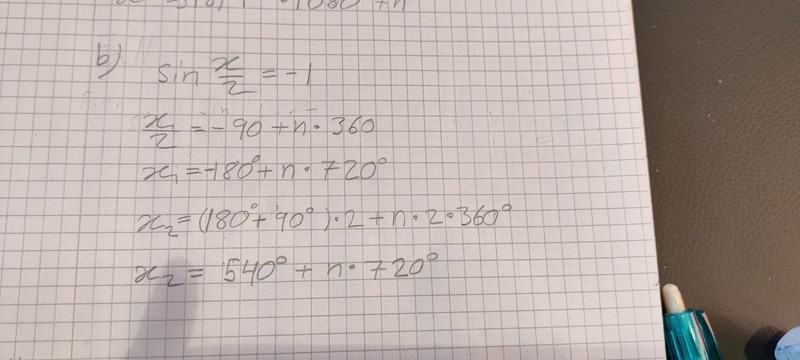 b) sin x/2 = -1
x₁/2 = -90 + n · 360
x₁ = -180° + n · 720°
x₂ = (180° + 90°) · 2 + n · 2 · 360°
x₂ = 540° + n · 720°